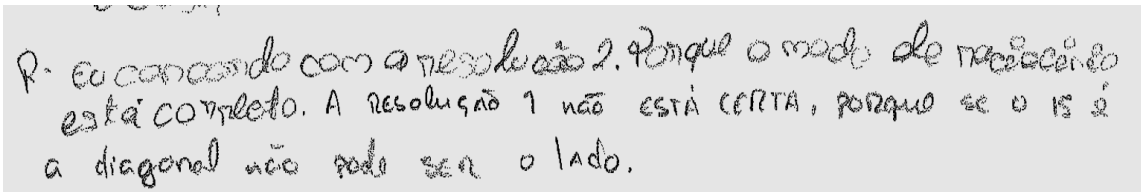 R- Eu concordo com a resolução 2. Porque o modo de raciocínio
está correto. A resolução 1 não está certa, porque se o 15 é
a diagonal não pode ser o lado.